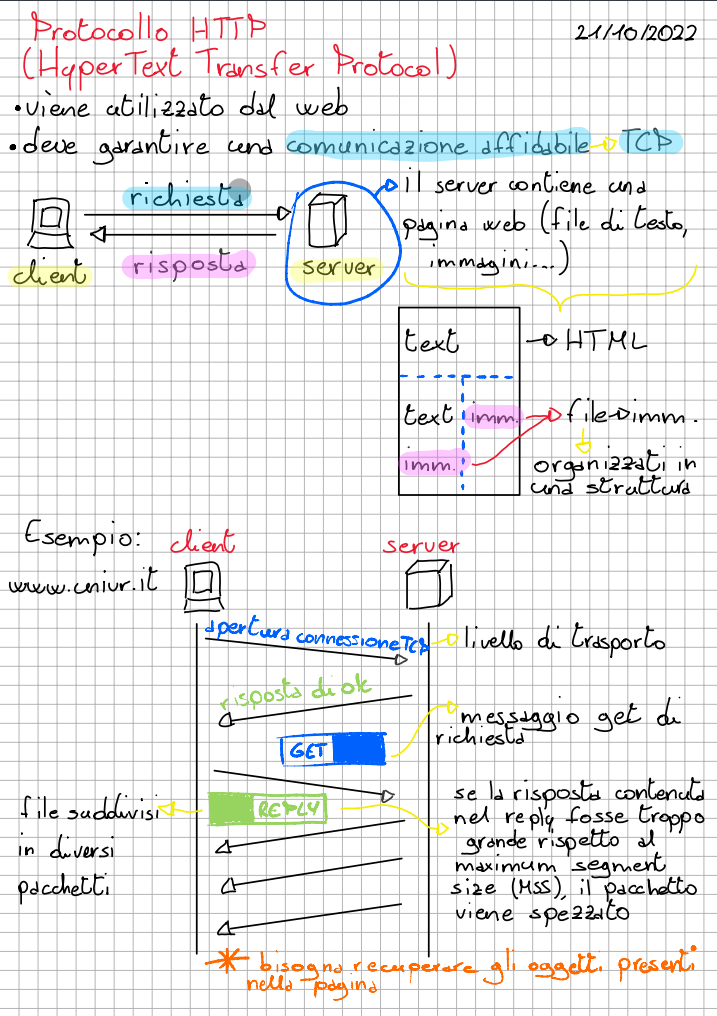 Protocollo HTTP
21/10/2022
(HyperText Transfer Protocol)
•viene utilizzato dal web
•deve garantire una comunicazione affidabile → TCP
richiesta
risposta
client
server
il server contiene una
pagina web (file di testo,
immagini...)
text → HTML
text imm. → file → imm.
imm.
organizzati in
una struttura
Esempio:
www.univr.it
client
server
apertura connessione TCP → livello di trasporto
risposta di ok
GET
messaggio get di
richiesta
REPLY
file suddivisi
in diversi
pacchetti
se la risposta contenuta
nel reply fosse troppo
grande rispetto al
maximum segment
size (MSS), il pacchetto
viene spezzato
* bisogna recuperare gli oggetti presenti
nella pagina